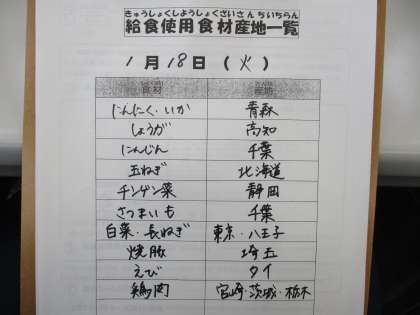 きゅうしょくしようしょくざいさんちいちらん
給食使用食材産地一覧
1月18日(火)
食材 産地
にんにく・いか 青森
しょうが 高知
にんじん 千葉
玉ねぎ 北海道
チンゲン菜 静岡
さつまいも 千葉
白菜・長ねぎ 東京・八王子
焼豚 埼玉
えび タイ
鶏肉 宮崎・茨城・栃木